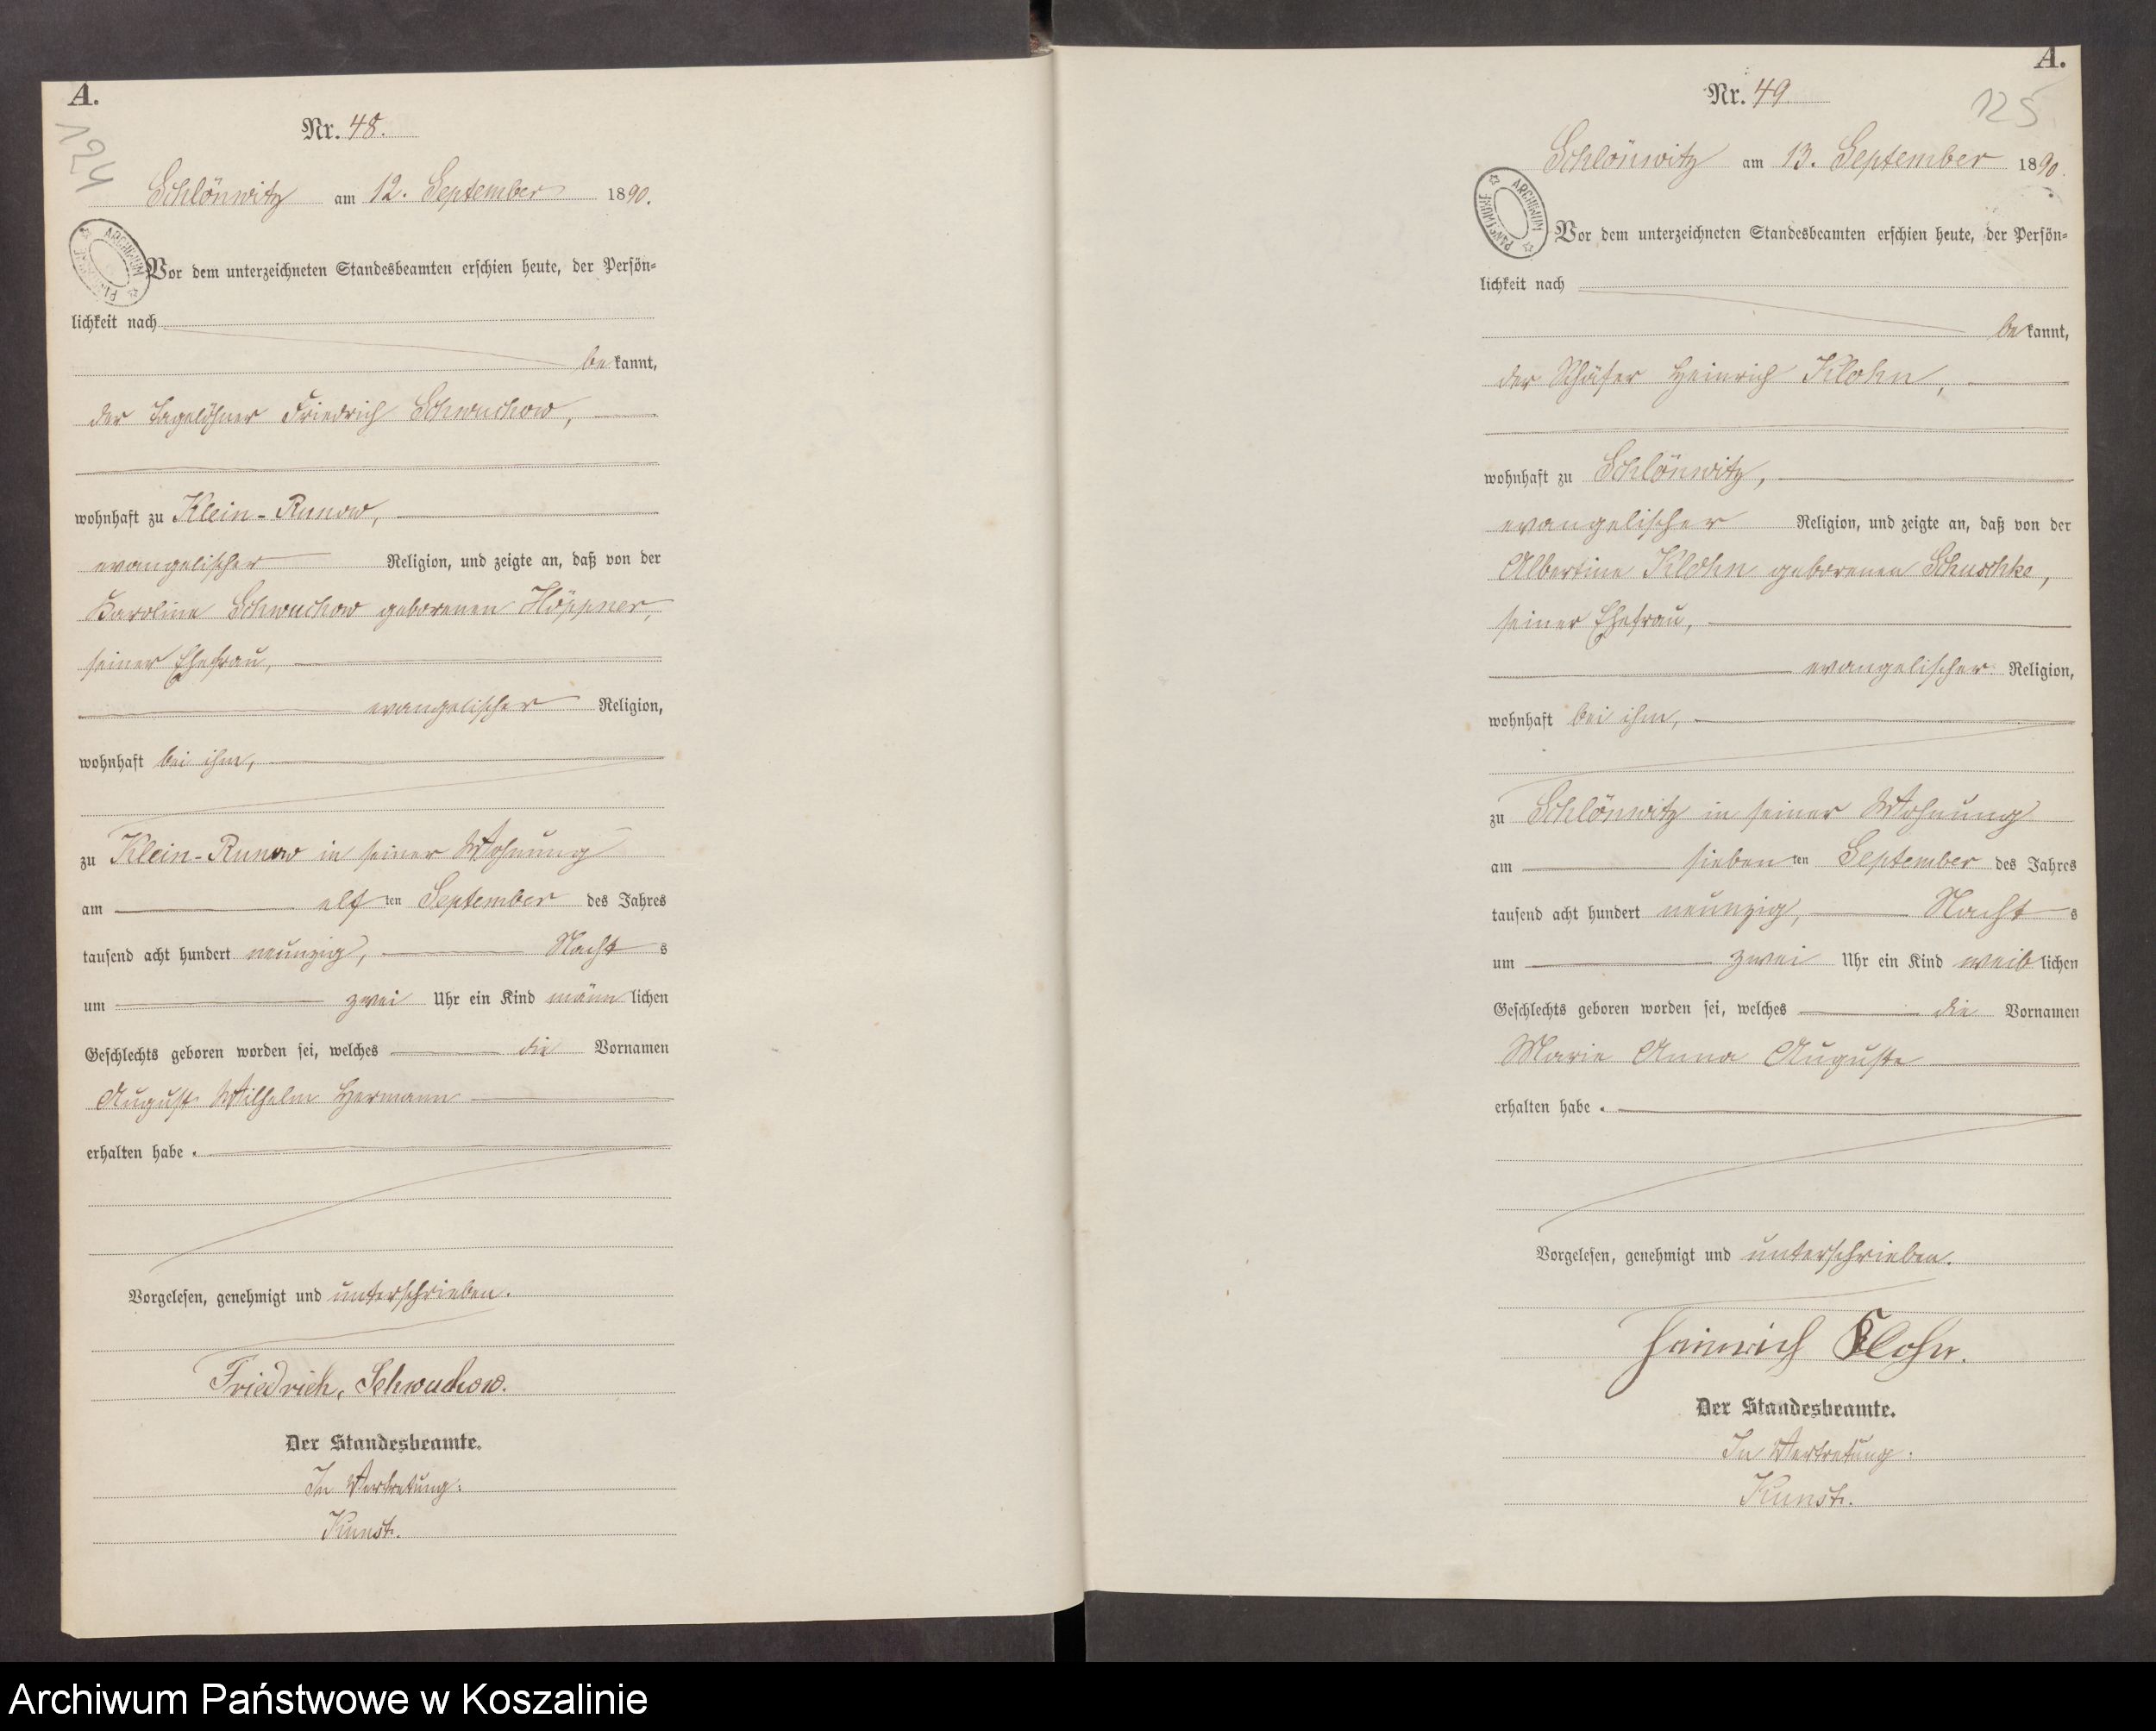 A.
124
Nr. 48.
Schlönwitz am 12. September 1890.
Vor dem unterzeichneten Standesbeamten erschien heute, der Persön-
lichkeit nach
bekannt,
der Tagelöhner Friedrich Schwuchow,
wohnhaft zu Klein-Runow,
evangelischer Religion, und zeigte an, daß von der
Karoline Schwuchow geborenen Höppner,
seiner Ehefrau,
evangelischer Religion,
wohnhaft bei ihm,
zu Klein-Runow in seiner Wohnung
am elften September des Jahres
tausend acht hundert neunzig, Nachts
um zwei Uhr ein Kind männlichen
Geschlechts geboren worden sei, welches die Vornamen
August Wilhelm Hermann
erhalten habe.
Vorgelesen, genehmigt und unterschrieben.
Friedrich, Schwuchow.
Der Standesbeamte.
In Vertretung:
Kunst.
A.
125
Nr. 49
Schlönwitz am 13. September 1890.
ARCHIWUM PAŃSTWOWE
Vor dem unterzeichneten Standesbeamten erschien heute, der Persön-
lichkeit nach
bekannt,
der Schäfer Heinrich Klohn,
wohnhaft zu Schlönwitz,
evangelischer Religion, und zeigte an, daß von der
Albertine Klohn geborenen Schuschke,
seiner Ehefrau,
evangelischer Religion,
wohnhaft bei ihm,
zu Schlönwitz in seiner Wohnung
am siebenten September des Jahres
tausend acht hundert neunzig, Nachts
um zwei Uhr ein Kind weiblichen
Geschlechts geboren worden sei, welches die Vornamen
Marie Anna Auguste
erhalten habe.
Vorgelesen, genehmigt und unterschrieben.
Heinrich Klohn.
Der Standesbeamte.
In Vertretung:
Kunst.
Archiwum Państwowe w Koszalinie